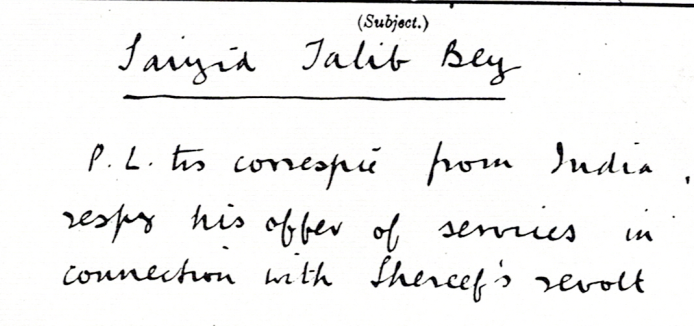 (Subject.)
Saiyid Talib Bey
P. L. trs correspce from India,
respg his offer of services in
connection with Shereef's revolt